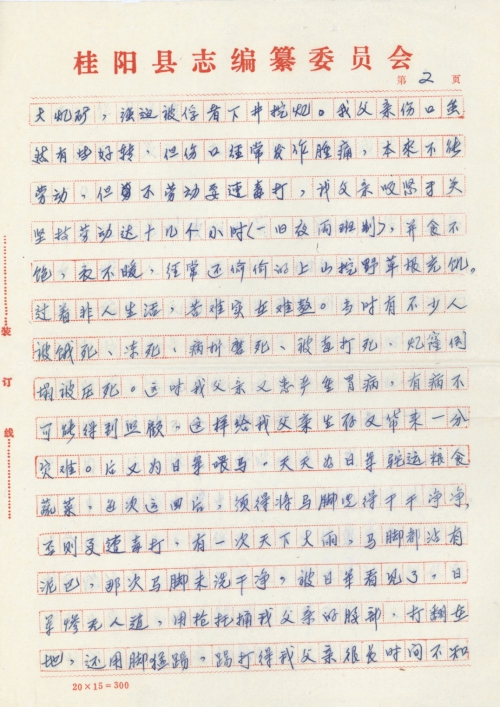 桂阳县志编纂委员会
第2页
大煤矿，强迫被俘者下井挖煤。我父亲伤口虽
然有些好转，但伤口经常发作肿痛，本来不能
劳动，但是不劳动要遭毒打，我父亲咬紧牙关
坚持劳动达十几个小时（一日夜两班制），并食不
饱，衣不暖，经常还偷偷的上山挖野草根充饥。
过着非人生活，苦难实在难熬。当时有不少人
被饿死、冻死、病折磨死、被毒打死、煤窑倒
塌被压死。这时我父亲又患严重胃病，有病不
可能得到照顾，这样给我父亲生存又带来一分
灾难。后又为日军喂马，天天为日军驼运粮食
蔬菜，每次运回后，须得将马脚洗得干干净净，
否则又遭毒打，有一次天下大雨，马脚都沾有
泥巴，那次马脚未洗干净，被日军看见了，日
军惨无人道，用枪托捅我父亲的股部，打翻在
地，还用脚猛踢，踢打得我父亲很长时间不知
装订线
20×15=300